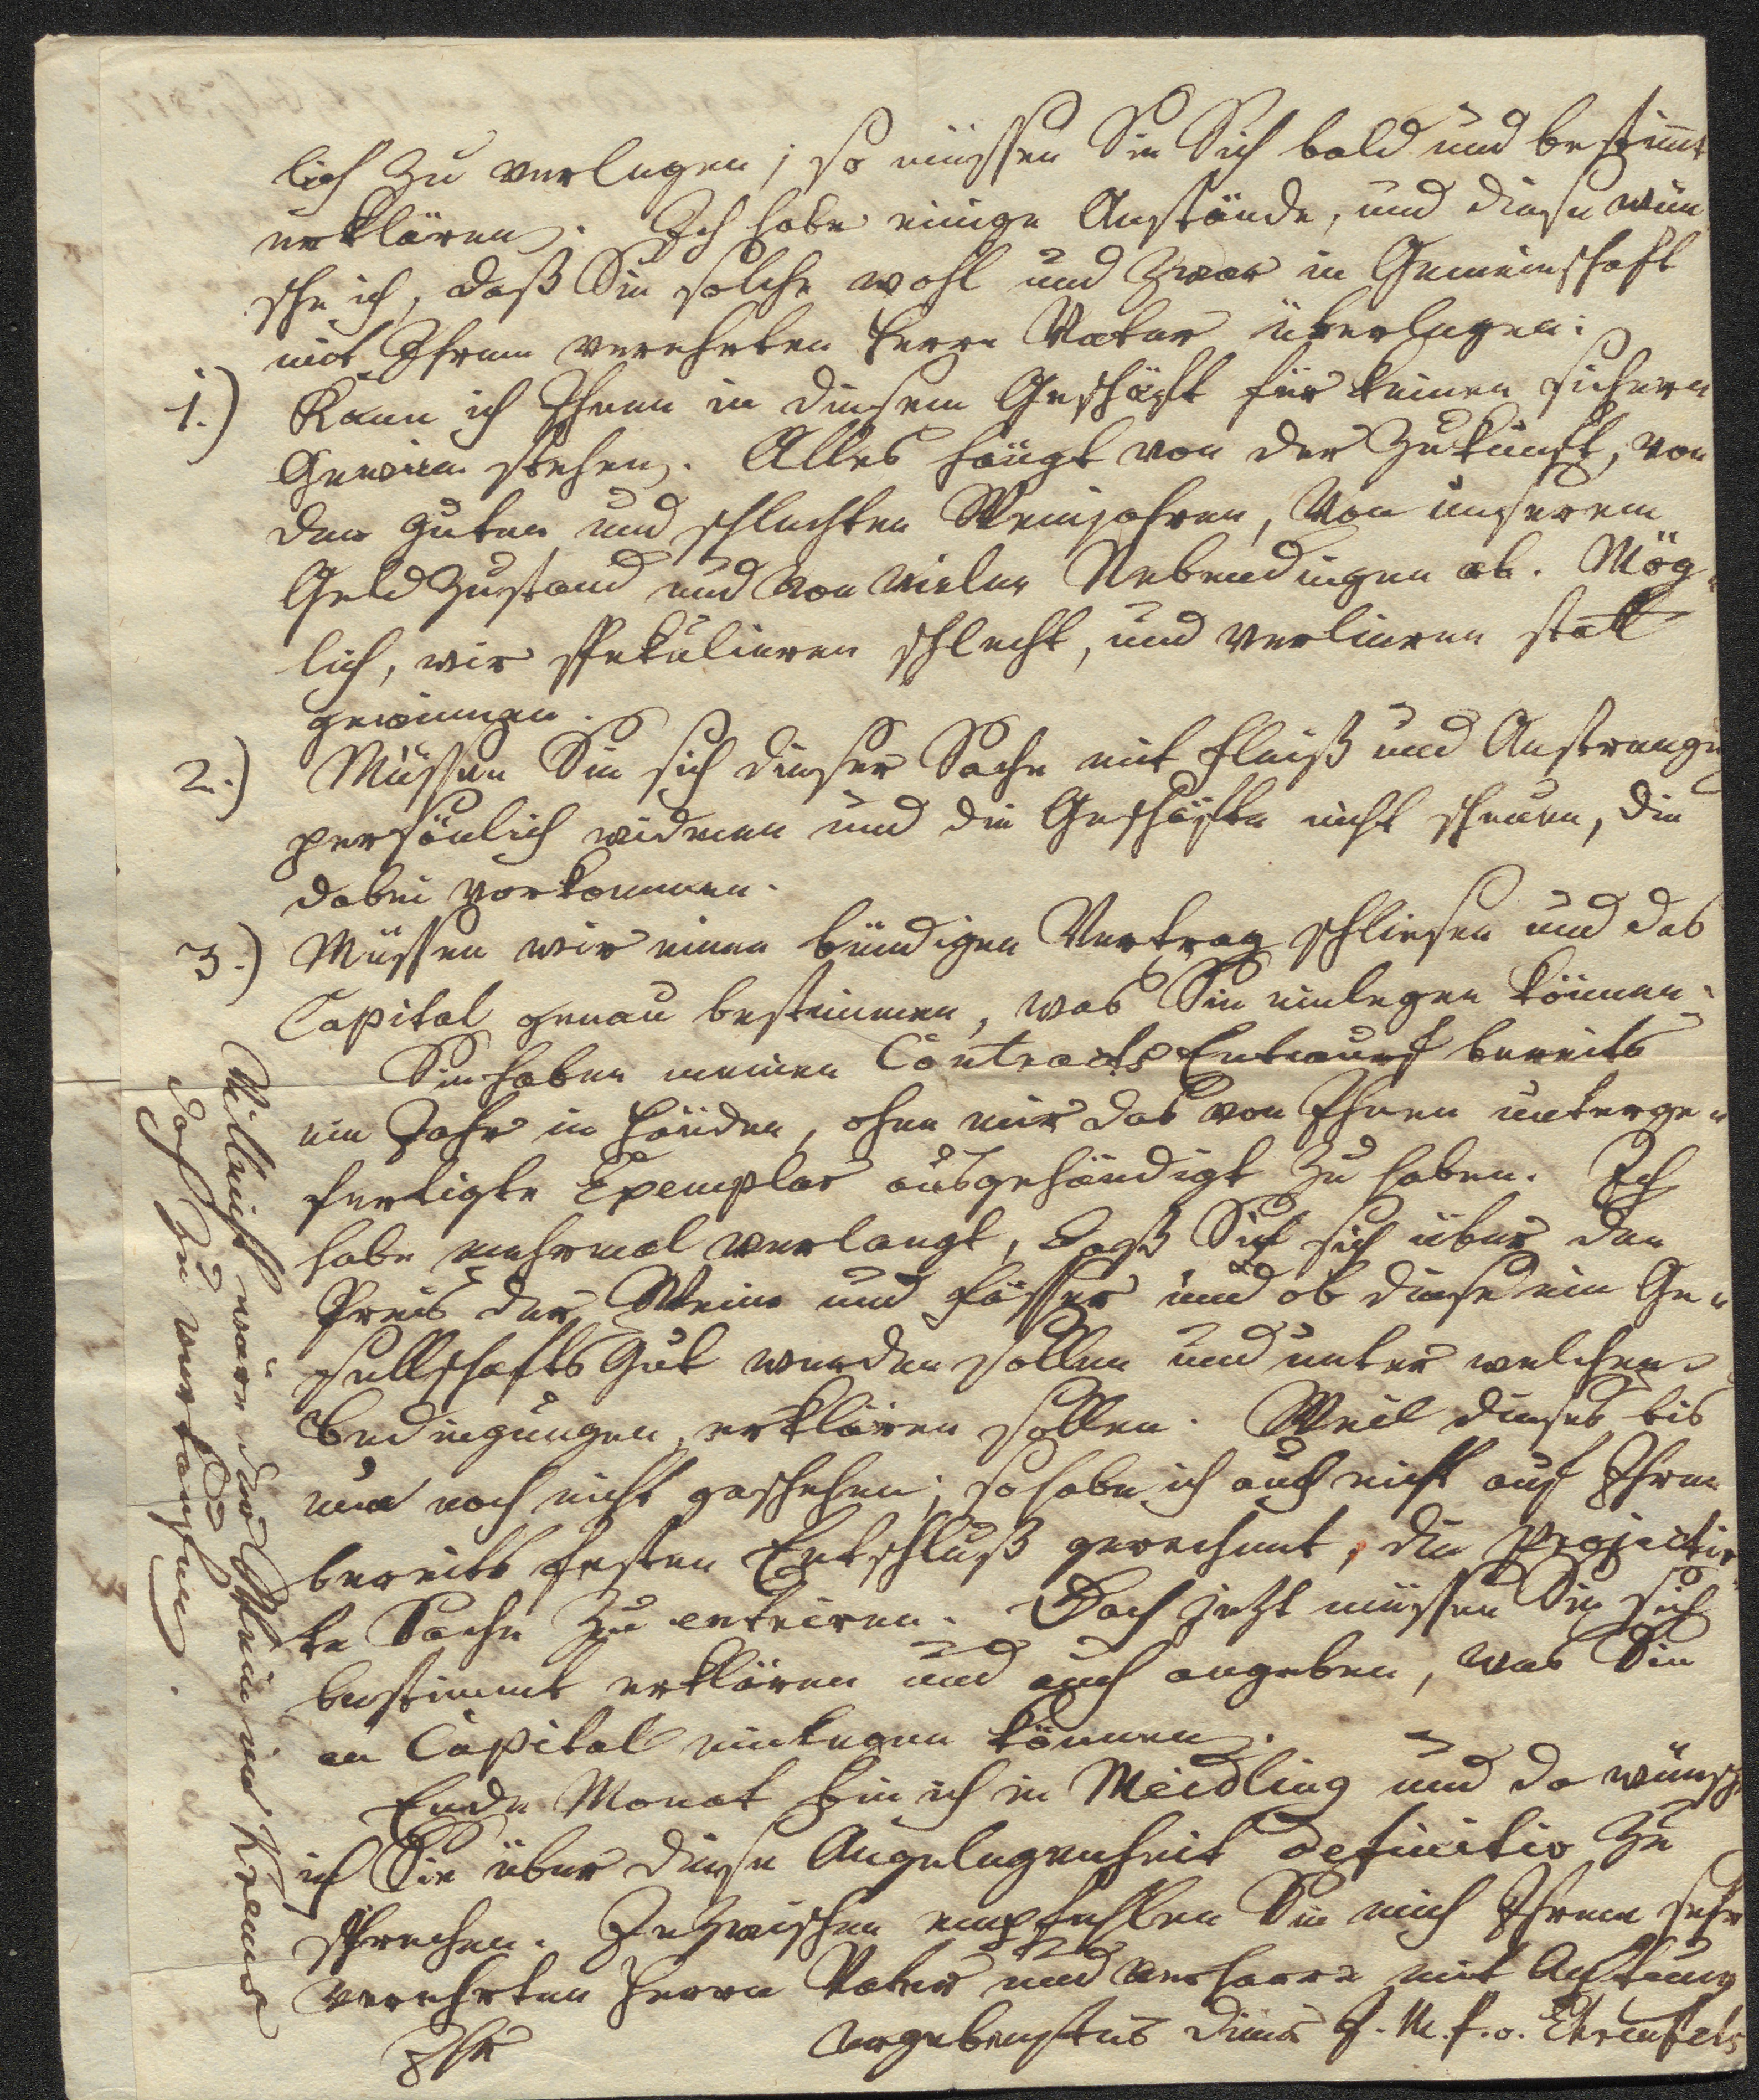 lich zu verlegen; so müssen Sie Sich bald und bestimt
erklären. Ich habe einige Anstände, und diese wün
sche ich, daß Sie solche wohl und zwar in Gemeinschaft
mit Ihrem verehrten Herrn Vater überlegen:
1.) Kann ich Ihnen in diesem Geschäft für keinen sichern
Gewinn stehen. Alles hängt von der Zukunft, von
den guten und schlechten Weinjahren, von unserem
Geldzustand und von vielen Nebendingen ab. Mög-
lich, wir spekulieren schlecht, und verlieren statt
gewinnen.
2.) Müssen Sie sich dieser Sache mit Fleiß und Anstrengug
persönlich widmen und die Geschäfte nicht scheuen, die
dabei vorkommen.
3.) Müssen wir einen bündigen Vertrag schliesen und das
Capital genau bestimmen, was Sie einlegen können.
Sie haben meinen Contracts Entwurf bereits
ein Jahr in Händen, ohne mir das von Ihnen unterge-
fertigte Exemplar ausgehändigt zu haben. Ich
habe mehrmal verlangt, daß Sie sich über den
Preis der Weine und Fässer und ob diese ein Ge-
sellschafts Gut werden sollen und unter welchen
Bedingungen, erklären sollen. Weil dieses bis
nun noch nicht geschehen; so habe ich auch nicht auf Ihren
bereits festen Entschluß gerechnet, die projectir-
te Sache zu entriren. Doch jetzt müssen Sie sich
bestimmt erklären und auch angeben, was Sie
an Capital einlegen können.
Ende Monat bin ich in Meidling und da wünsche
ich Sie über diese Angelegenheit definitiv zu
sprechen. Inzwischen empfehlen Sie mich Ihrem sehr
verehrten Herrn Vater und verharre mit Achtung
Ihr ergebenster Diener J. M. F. v. Ehrenfels
Vielleicht wäre der Wein in Krems
doch zu verkaufen.